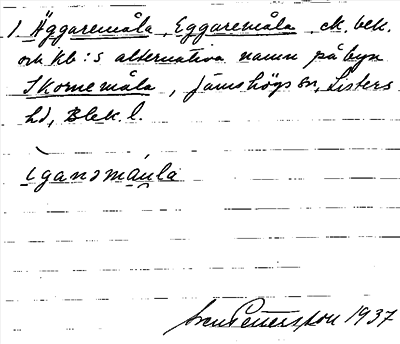 1. Äggaremåla, Eggaremåla, ek. bek.
och kb:s alternativa namn på byn
Skornemåla, Jämshögs sn, Listers
hd, Blek. l.
Sven Petersson 1937